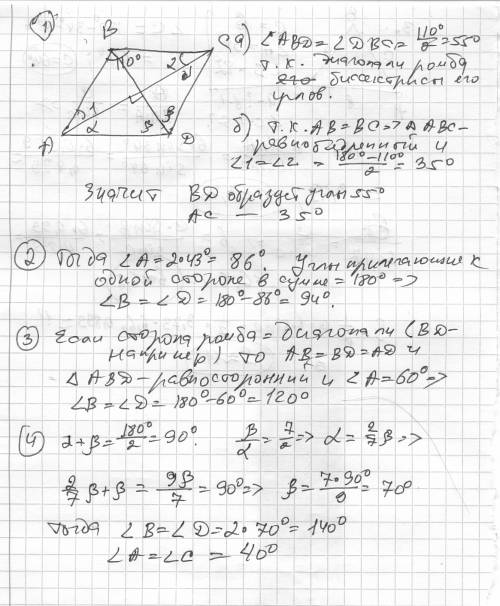 1)
B
110°
2
C
A
1
α
β
β
D
а) ∠ABD = ∠DBC = 110°/2 = 55°
т.к. диагонали ромба
его биссектрисы его
углов.
б) т.к. AB = BC => Δ ABC –
равнобедренный и
∠1 = ∠2 = (180° – 110°)/2 = 35°
Значит BD образует угол 55°
AC — 35°
2 Тогда ∠A = 2·43° = 86°. Углы прилегающие к
одной стороне в сумме = 180° =>
∠B = ∠D = 180° – 86° = 94°.
3 Если сторона ромба = диагонали (BD –
например) то AB = BD = AD и
Δ ABD – равносторонний и ∠A = 60° =>
∠B = ∠D = 180° – 60° = 120°
4 α + β = 180°/2 = 90°. β/α = 7/2 => α = 2/7 β =>
2/7 β + β = 9β/7 = 90° => β = 7·90°/9 = 70°
Тогда ∠B = ∠D = 2·70° = 140°
∠A = ∠C = 40°